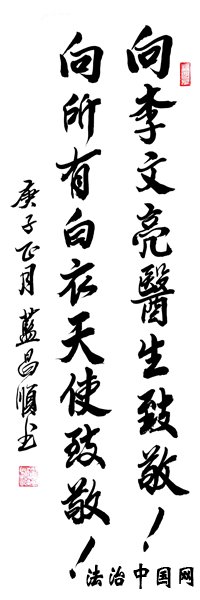 向李文亮醫生致敬！
向所有白衣天使致敬！
庚子正月 藍昌順书
法治中国网